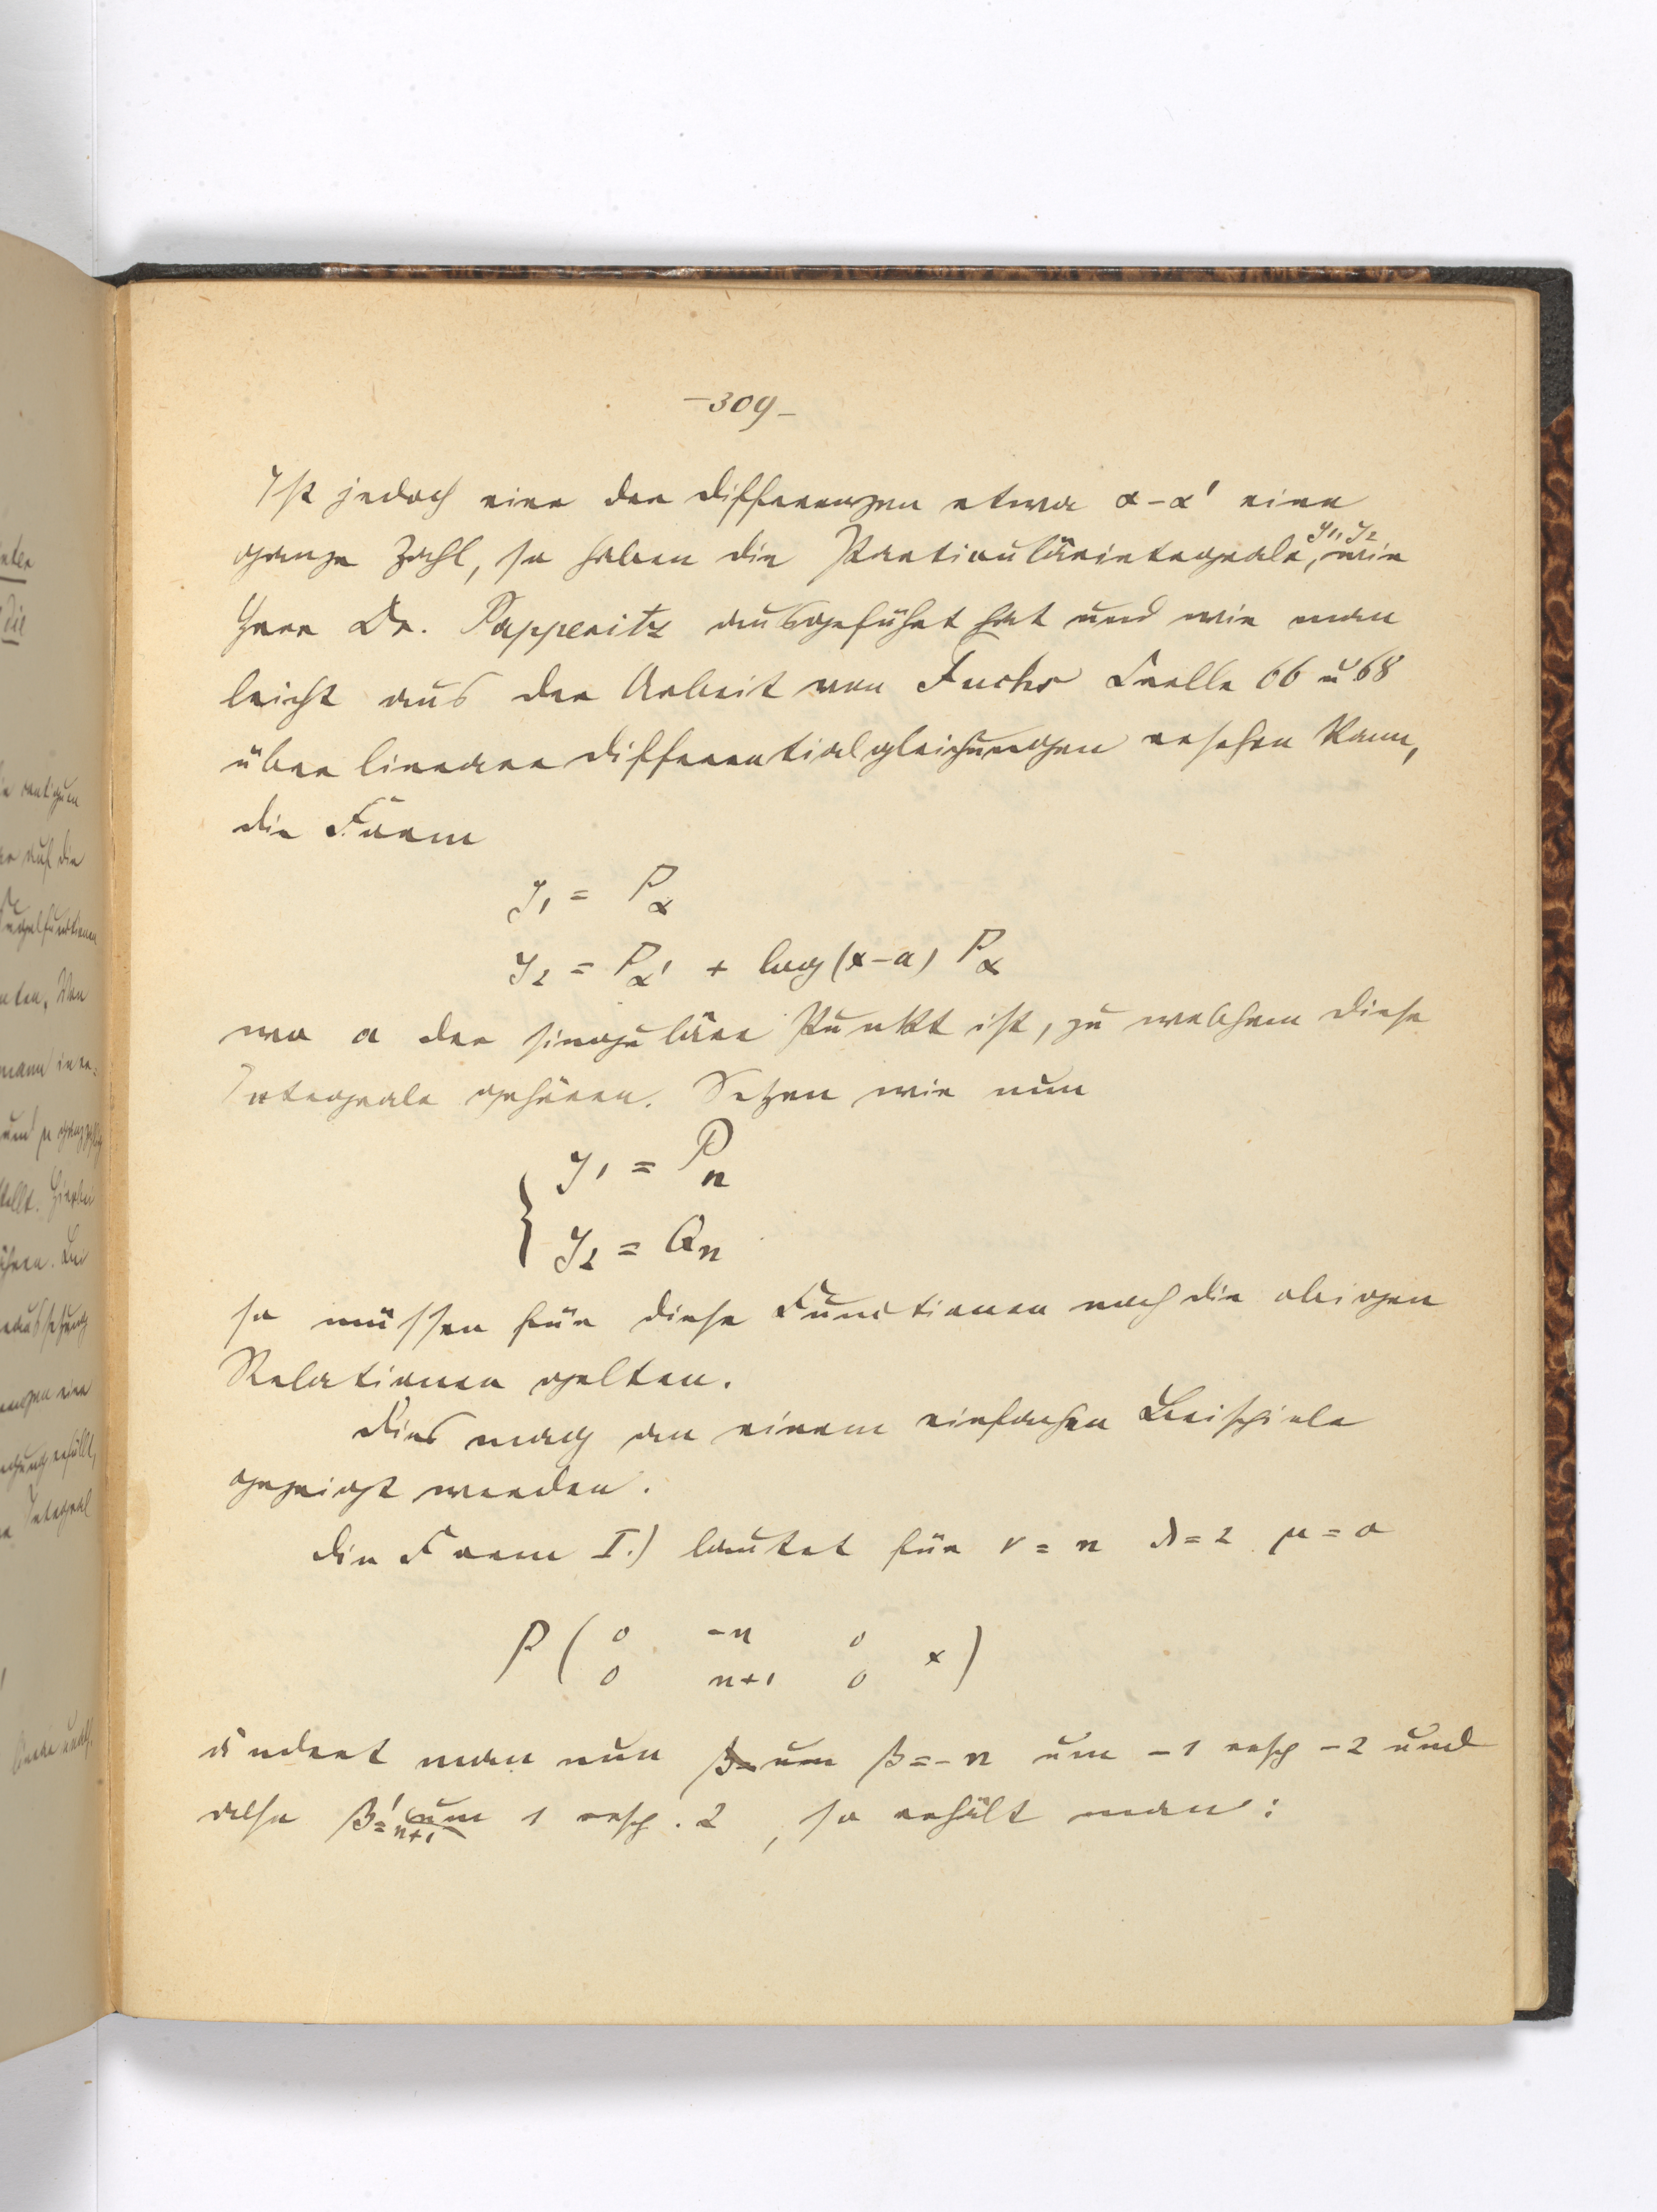 –309–
Ist jedoch eine der Differenzen etwa α–α' eine
ganze Zahl, so haben die Particulärintegrale y1, y2, wie
Herr Dr. Papperitz ausgeführt hat und wie man
leicht aus der Arbeit von Fuchs Crelle 66 u 68
über lineare Differentialgleichungen ersehen kann,
die Form
y1 = Pα
y2 = Pα' + log(x–a) Pα
wo a der singuläre Punkt ist, zu welchem diese
Integrale gehören. Setzen wir nun
{ y1 = Pn
y2 = Qn
so müssen für diese Functionen noch die obigen
Relationen gelten.
Dies mag an einem einfachen Beispiele
gezeigt werden.
Die Form I.) lautet für ν = n λ = 2 μ = 0
P ( 0 –n 0 x )
0 n+1 0
ändert man nun β = –n um –1 resp –2 und
also β' = n+1 um 1 resp. 2, so erhält man: